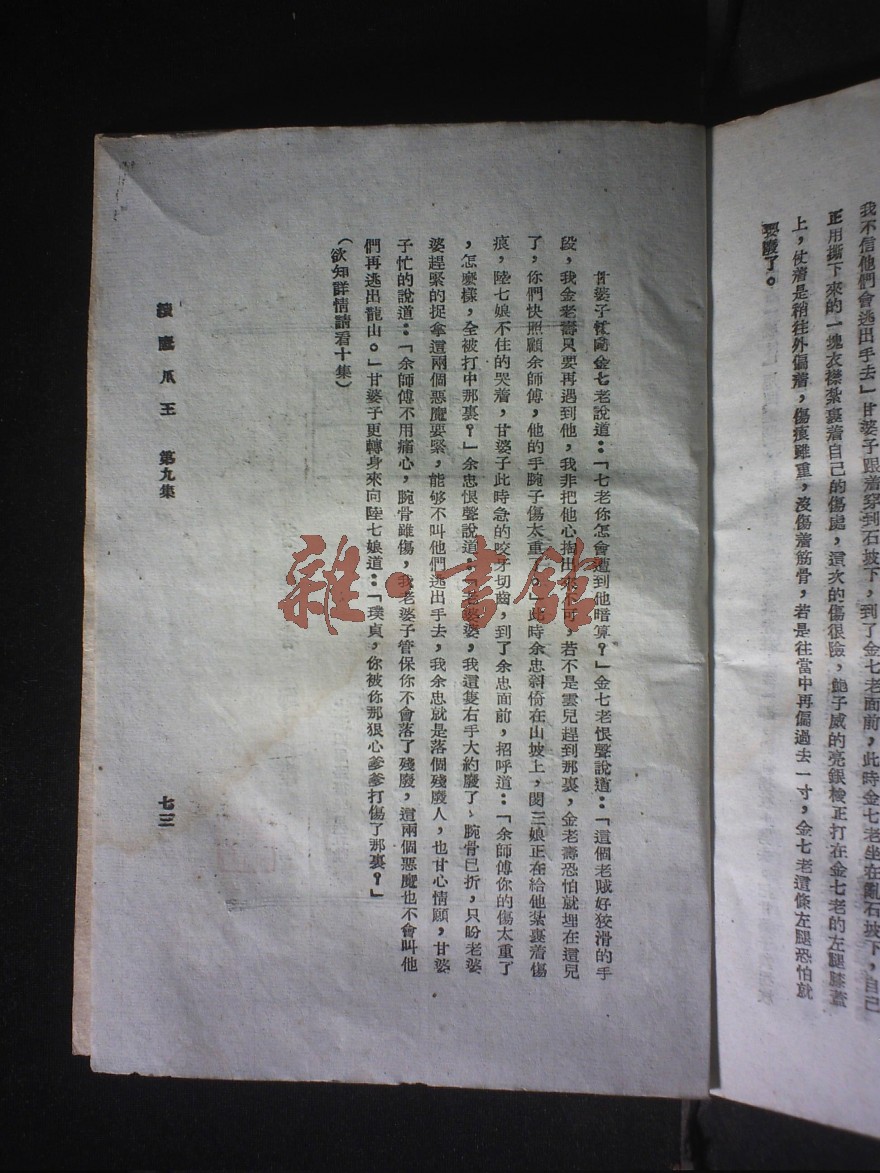 我不信他們會逃出手去」甘婆子跟着穿到石坡下，到了金七老面前，此時金七老坐在亂石坡下，自己
正用撕下來的一塊衣襟紮裹着自己的傷處，這次的傷很險，鮑子威的亮銀梭正打在金七老的左腿膝蓋
上，仗着是稍往外偏着，傷痕雖重，沒傷着筋骨，若是往當中再偏過去一寸，金七老這條左腿恐怕就
要廢了。
甘婆子忙向金七老說道：「七老你怎會遭到他暗算？」金七老恨聲說道：「這個老賊好狡滑的手
段，我金老壽只要再遇到他，我非把他心掏出來不可，若不是雲兒趕到那裏，金老壽恐怕就埋在這兒
了，你們快照顧余師傅，他的手腕子傷太重了。」此時余忠斜倚在山坡上，閔三娘正在給他紮裹着傷
痕，陸七娘不住的哭着，甘婆子此時急的咬牙切齒，到了余忠面前，招呼道：「余師傅你的傷太重了
，怎麼樣，全被打中那裏？」余忠恨聲說道：「老婆婆，我這隻右手大約廢了、腕骨已折，只盼老婆
婆趕緊的捉拿這兩個惡魔要緊，能够不叫他們逃出手去，我余忠就是落個殘廢人，也甘心情願，甘婆
子忙的說道：「余師傅不用痛心，腕骨雖傷，我老婆子管保你不會落了殘廢，這兩個惡魔也不會叫他
們再逃出龍山。」甘婆子更轉身來向陸七娘道：「璞貞，你被你那狠心爹爹打傷了那裏？」
（欲知詳情請看十集）
續鷹爪王 第九集
七三
雜·書館